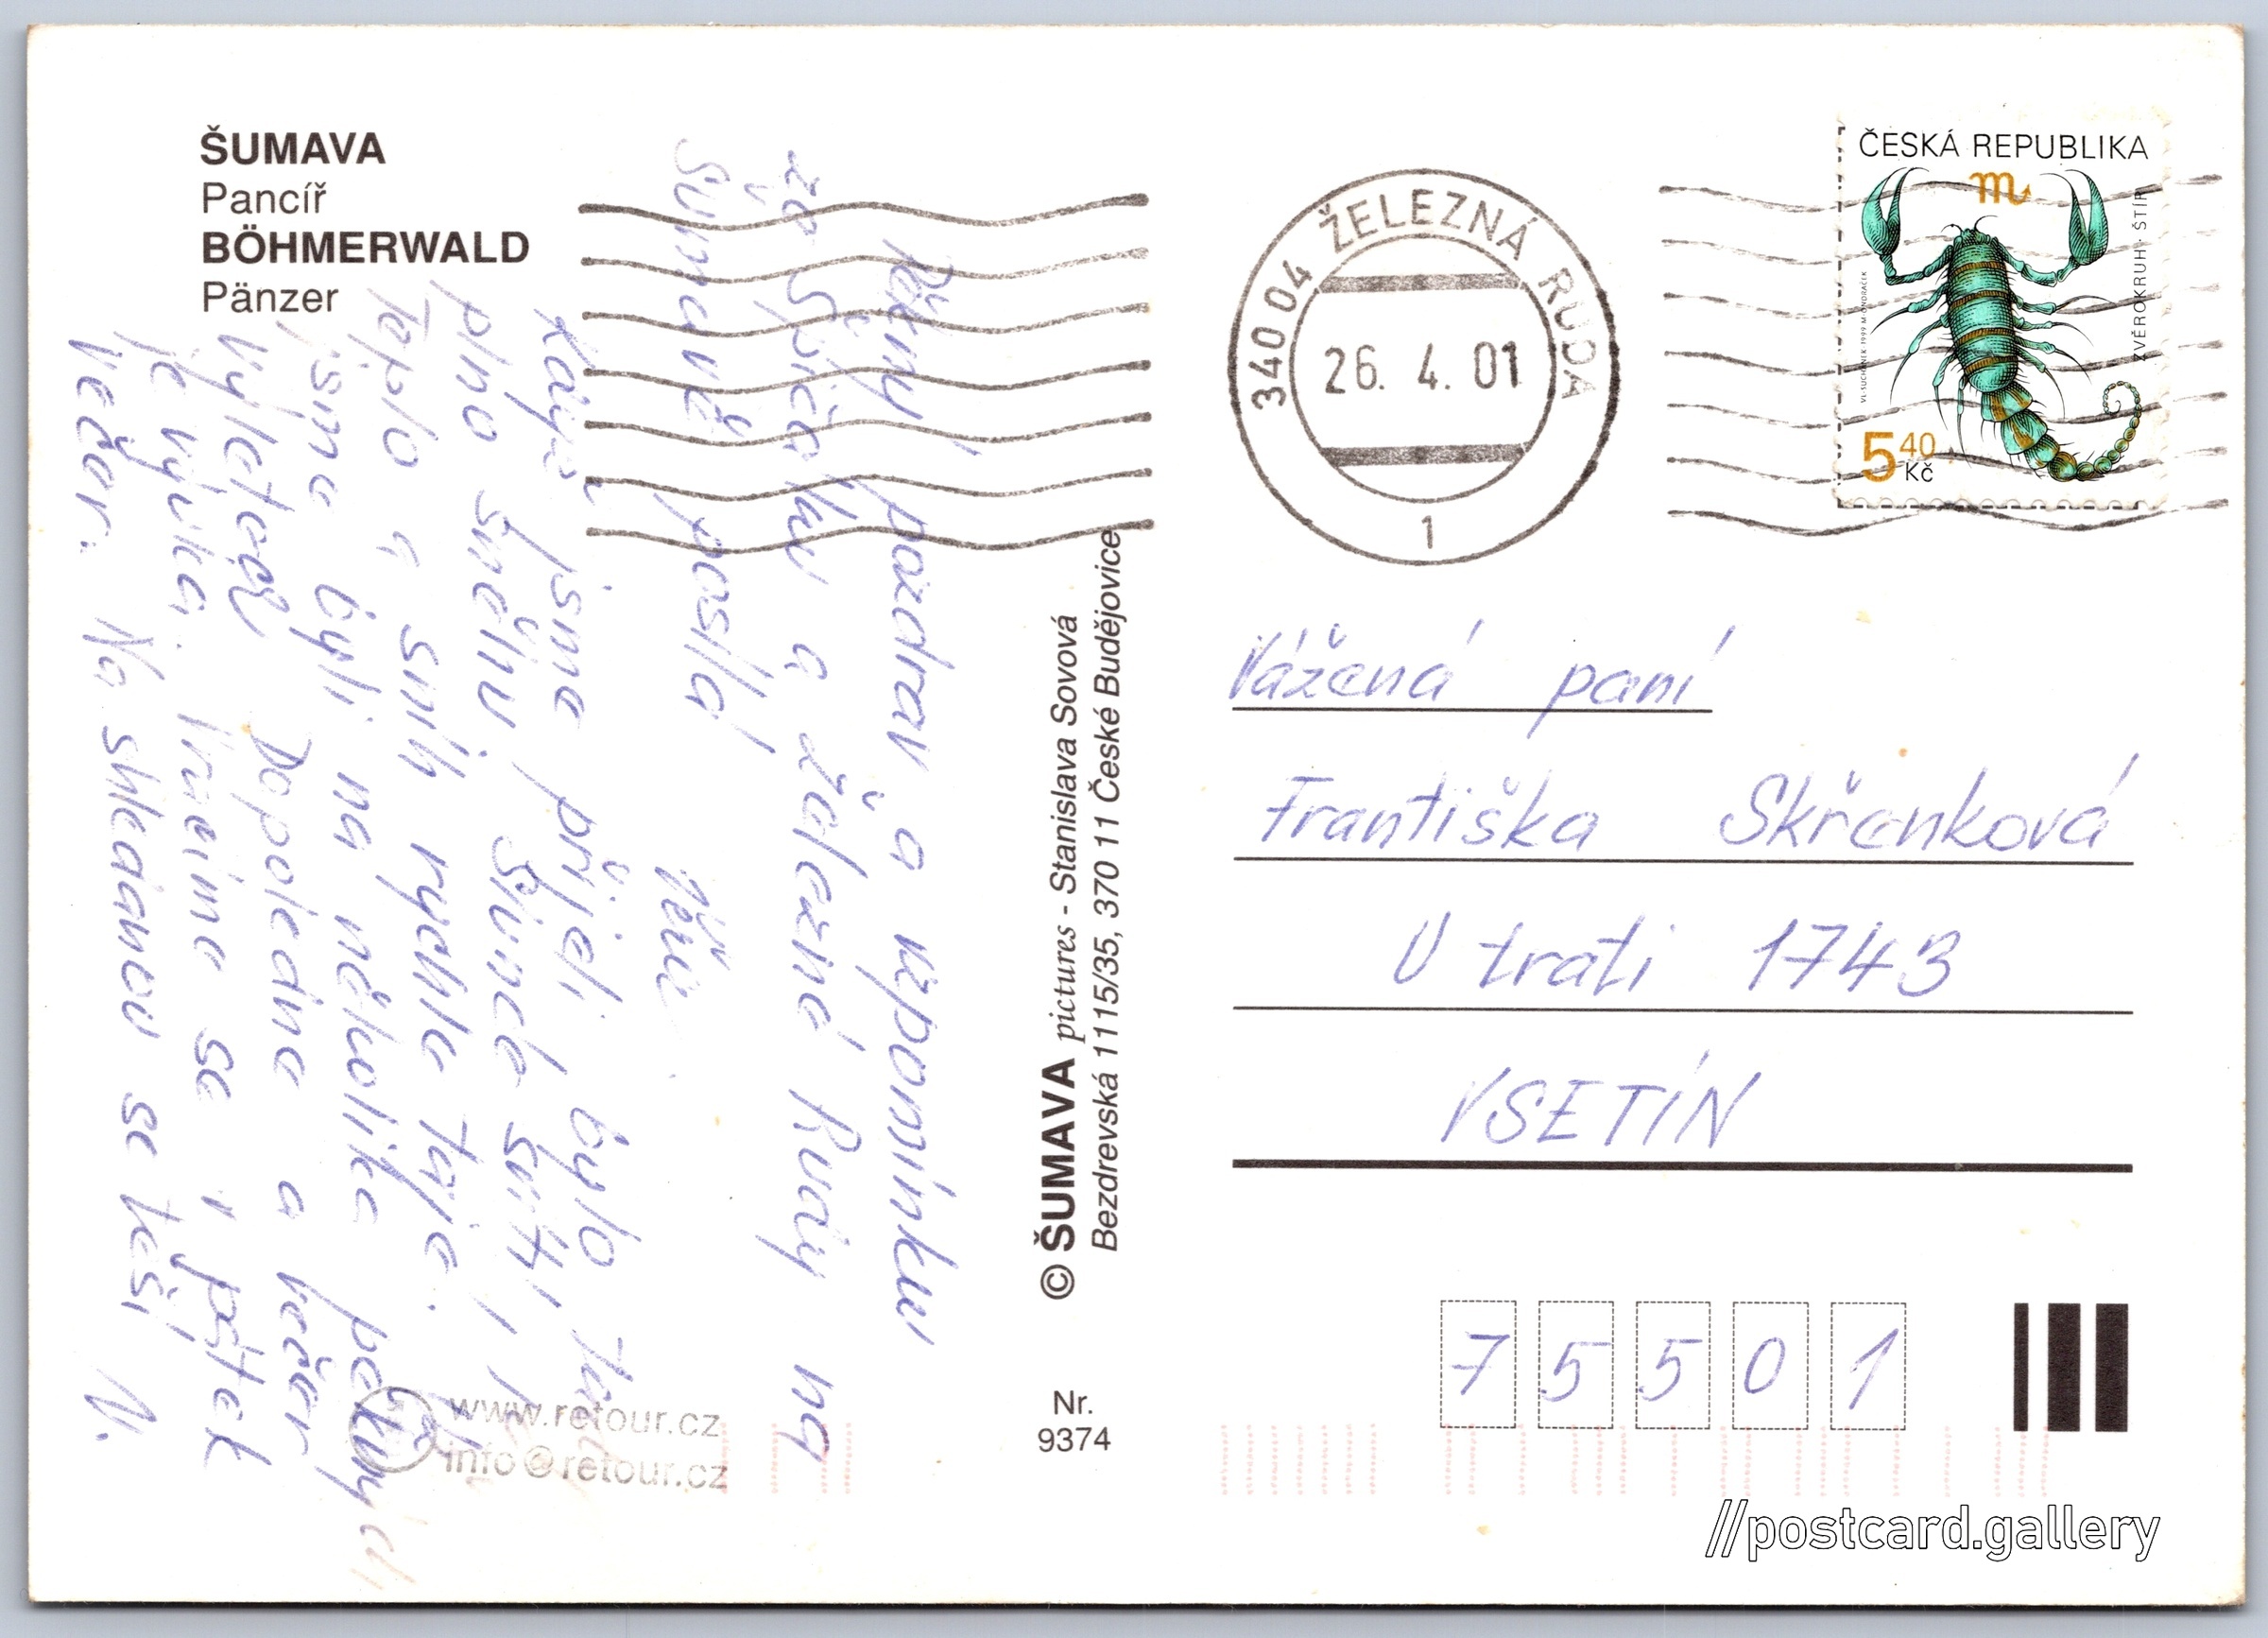 ŠUMAVA
Pancíř
BÖHMERWALD
Pänzer
Pěkný pozdrav a vzpomínku
ze Špičáku a Železné Rudy na
Šumavě posílá
Když jsme přijeli bylo tu
plno sněhu.
Teplo a sníh rychle taje.
jsme byli na několika pěkných
výletech. Dopoledne a večer
je výuka. Vracíme se v pátek
večer. Na shledanou se těší N.
© ŠUMAVA pictures - Stanislava Sovová
Bezdrevská 1115/35, 370 11 České Budějovice
Nr.
9374
www.retour.cz
info@retour.cz
340 04 ŽELEZNÁ RUDA
26. 4. 01
1
ČESKÁ REPUBLIKA
ZVĚROKRUH - ŠTÍR
VL. SUCHÁNEK 1999 M. ONDRÁČEK
5 40
Kč
Vážená paní
Františka Skřenková
U trati 1743
VSETÍN
7 5 5 0 1
//postcard.gallery